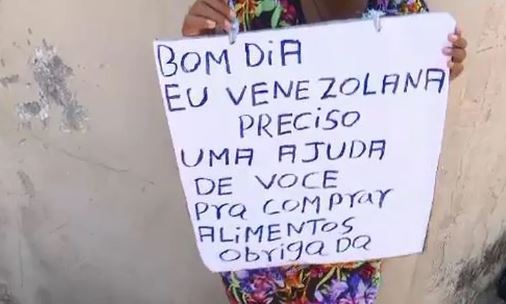 BOM DiA
EU VENEZOLANA
PRECiSO
UMA AJUDA
DE VOCE
Pra COMPrar
ALiMENTOS
ObrigaDa